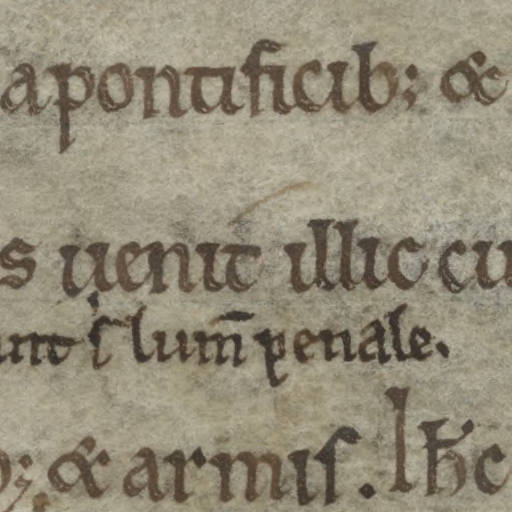 a pontificib; &
s uenit illic cu
unt ſ lum̄ penale.
; & armiſ. l h̄c